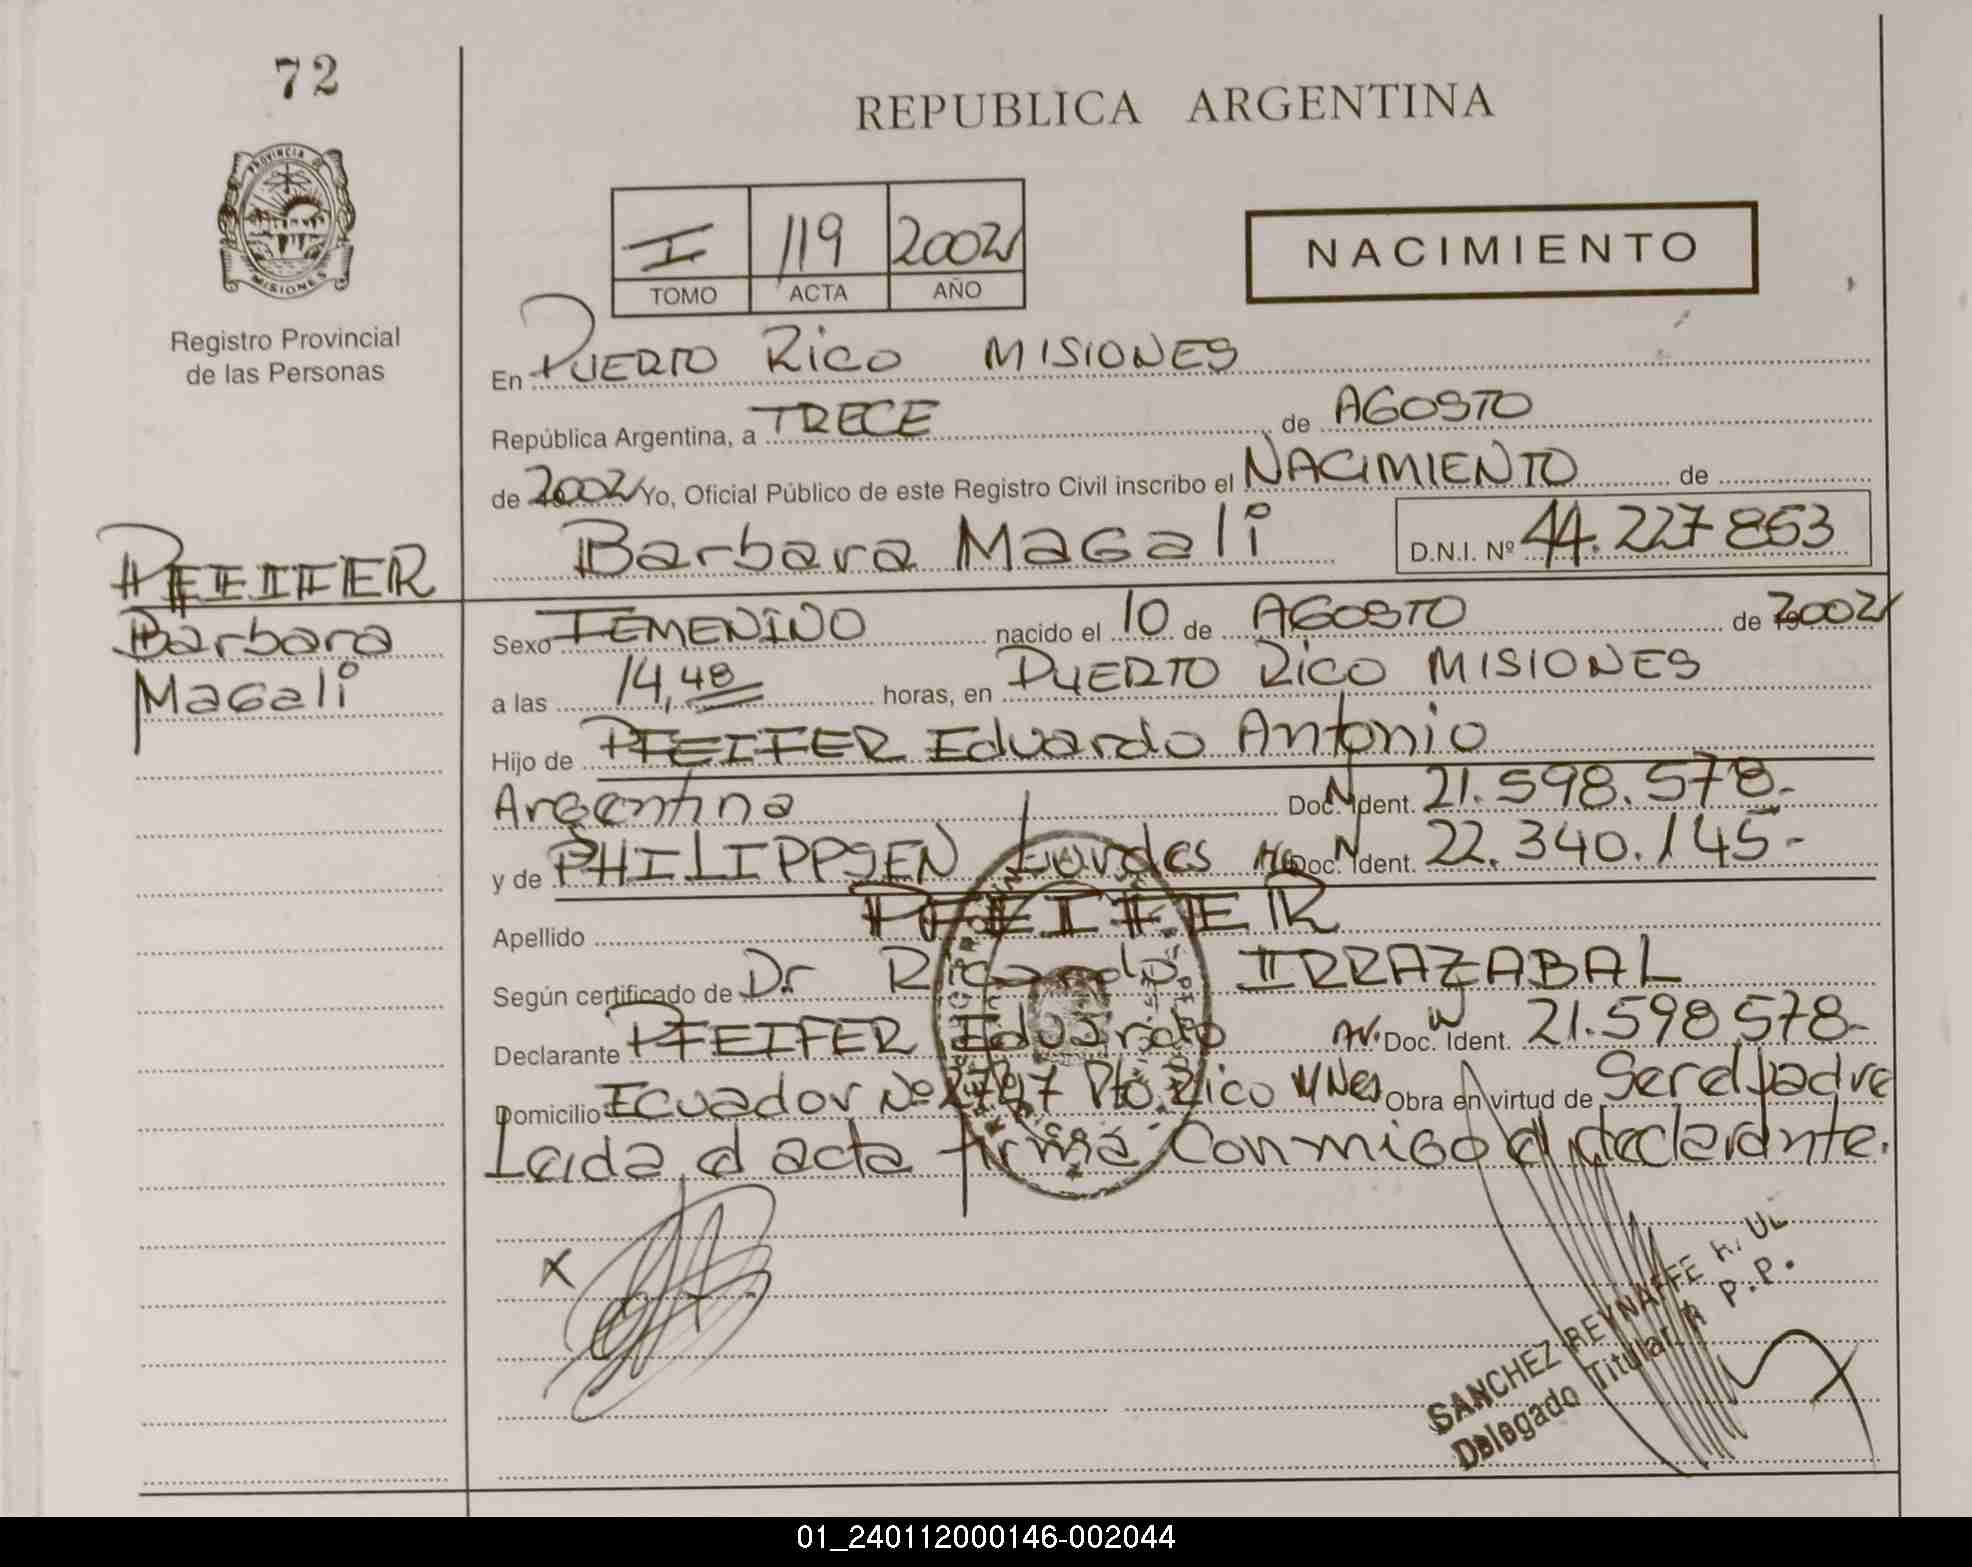 72
REPUBLICA ARGENTINA
PROVINCIA DE
MISIONES
Registro Provincial
de las Personas
I 119 2002
TOMO ACTA AÑO
NACIMIENTO
En PUERTO RICO MISIONES
República Argentina, a TRECE de AGOSTO
de 2002 Yo, Oficial Público de este Registro Civil inscribo el NACIMIENTO de
Barbara MaGali D.N.I. Nº 44.227853
PFEIFER
Barbara
MaGali
Sexo FEMENINO nacido el 10 de AGOSTO de 2002
a las 14,48 horas, en PUERTO RICO MISIONES
Hijo de PFEIFER Eduardo Antonio
Argentina Doc. N Ident. 21.598.578.-
y de PHILIPPSEN Lourdes Doc. N Ident. 22.340.145-
Apellido PFEIFER
Según certificado de Dr Ricardo IRRAZABAL
Declarante PFEIFER Eduardo Ar. Doc. N Ident. 21.598 578-
Domicilio Ecuador Nº Pto Rico MNes Obra en virtud de Ser el padre
Leida el acta firma Conmigo el declarante.
X
SANCHEZ REYNAFFE RAUL
Delegado Titular R P.P.
01_240112000146-002044